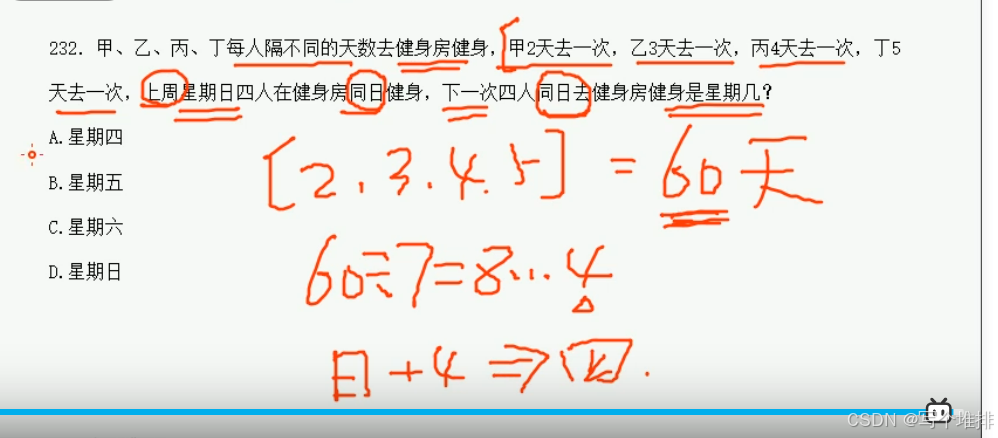 232. 甲、乙、丙、丁每人隔不同的天数去健身房健身，甲2天去一次，乙3天去一次，丙4天去一次，丁5
天去一次，上周星期日四人在健身房同日健身，下一次四人同日去健身房健身是星期几？
A.星期四
B.星期五
C.星期六
D.星期日
[2.3.4.5]=60天
60÷7=8…4
日+4⇒四.
CSDN @写个堆排